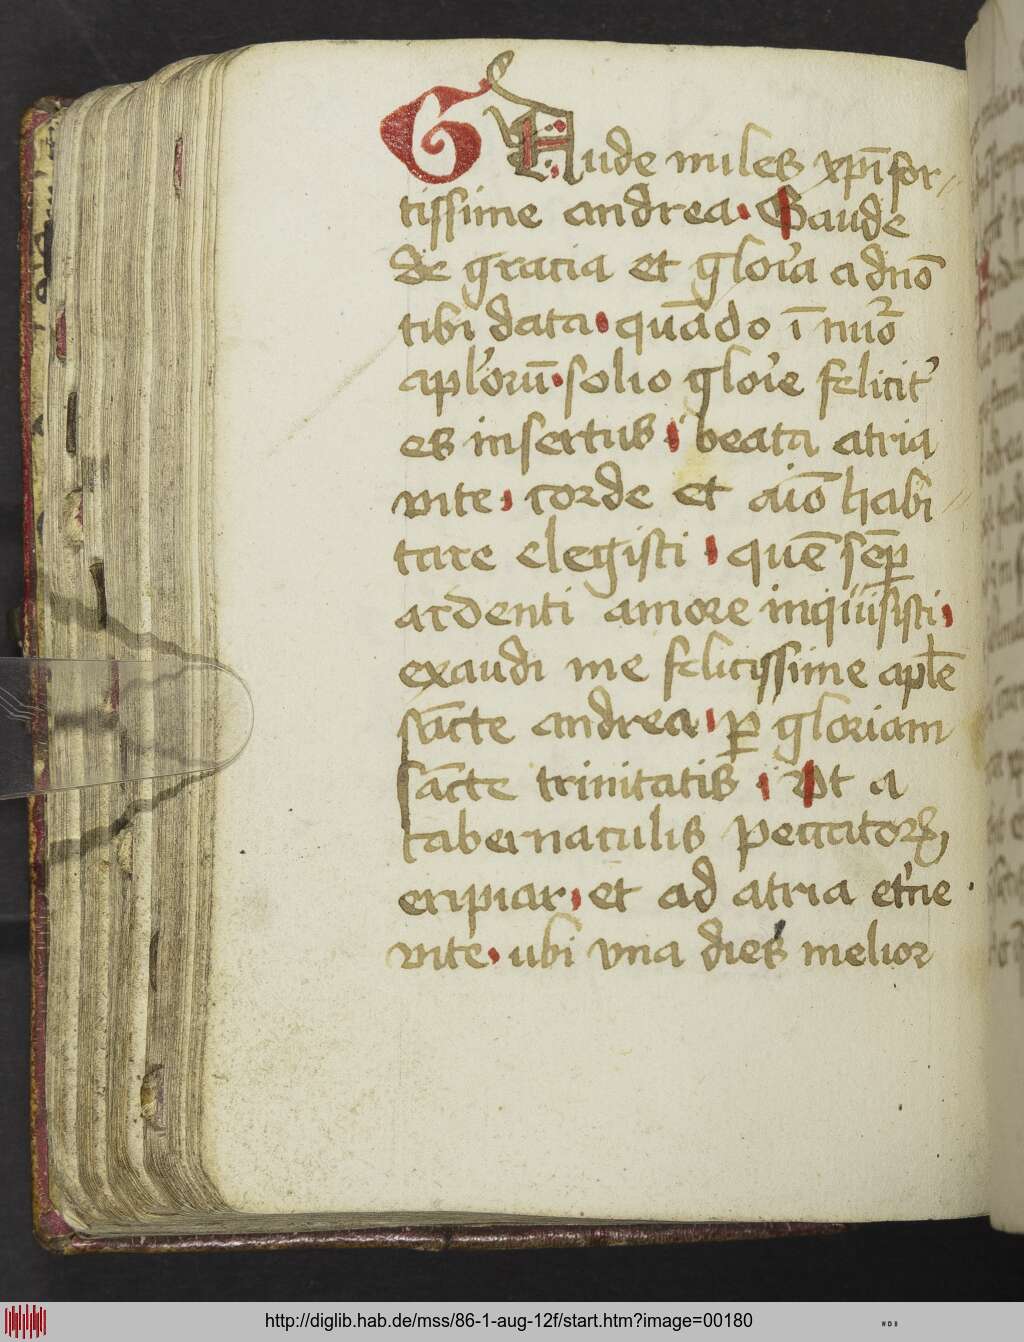 GAude miles xp̄i for-
tissime andrea. Gaude
de gracia et glor̉ia a dnō
tibi data. quādo ī nuōͬ
apl̉orū. solio glor̉e felicit̉
es insertus. beata atria
vite, corde et aīo habi-
tare elegisti, quē semꝑ
ardenti amore inquisisti,
exaudi me felicissime apl̄e
sācte andrea, ꝑ gloriam
sācte trinitatis. Vt a
tabernaculis peccatorꝝ
eripiar, et ad atria et̉ne
vite. ubi vna dies melior
http://diglib.hab.de/mss/86-1-aug-12f/start.htm?image=00180